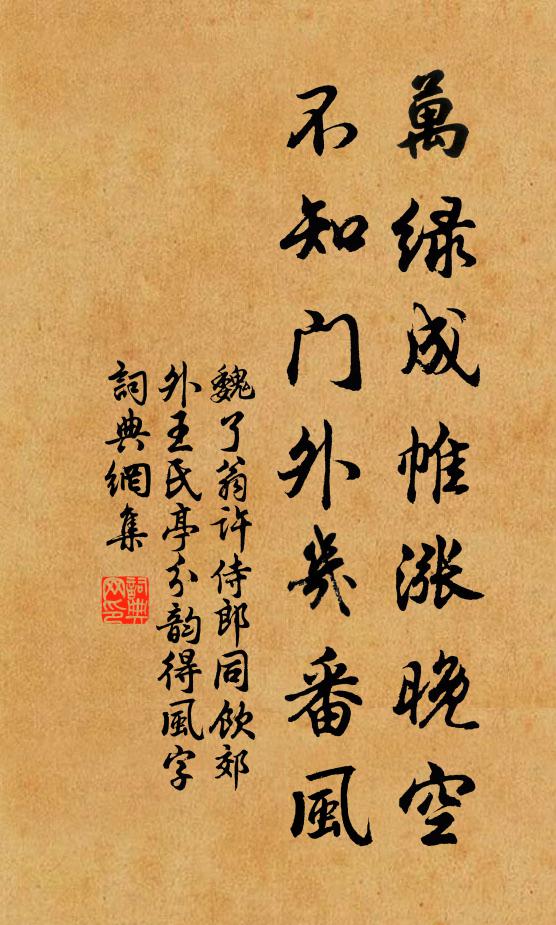 萬绿成帷漲晚空
不知门外幾番風
魏了翁许侍郎同飲郊
外王氏亭分韵得風字
詞典網集
詞典
网印